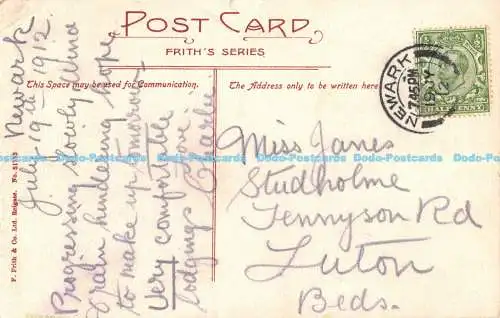 POST CARD
FRITH'S SERIES
This Space may be used for Communication.
The Address only to be written here
NEWARK
7.45 PM
HALF PENNY
Newark
July 19th 1912.
Progressing slowly. Wind
& rain hindering hope
to make up tomorrow
Very comfortable
lodgings Love
Charlie
Miss Janes
Studholme
Tennyson Rd
Luton
Beds.
F. Frith & Co. Ltd. Reigate.
Dodo-Postcards Dodo-Postcards Dodo-Postcards Dodo-Postcards Dodo-Postcards